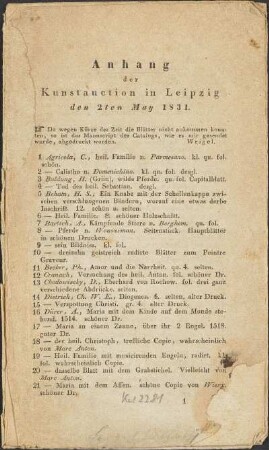 Anhang
der
Kunstauction in Leipzig
den 2ten May 1831.
Da wegen Kürze der Zeit die Blätter nicht ankommen konn-
ten, so ist das Manuscript des Catalogs, wie es mir gesendet
wurde, abgedruckt worden. Weigel.
1 Agricola, C., heil. Familie n. Parmesano. kl. qu. fol.
schön.
2 — Calistho n. Domenichino. kl. qu. fol. desgl.
3 Baldung, H. (Grün), wilde Pferde. qu. fol. Capitalblatt.
4 — Tod des heil. Sebastian. desgl.
5 Beham, H. S., Ein Knabe mit der Schellenkappe zwi-
schen verschlungenen Bändern, worauf eine etwas derbe
Inschrift. 12. schön u. selten.
6 — Heil. Familie. 8. schöner Holzschnitt.
7 Bartsch, A., Kämpfende Stiere n. Berghem. qu. fol.
8 — Pferde n. Wouverman. Seitenstück. Hauptblätter
in schönen Drucken.
9 — sein Bildniss. kl. fol.
10 — dreizehn geistreich radirte Blätter zum Peintre
Graveur.
11 Becker, Ph., Amor und die Narrheit. qu. 4. selten.
12 Cranach, Versuchung des heil. Anton. fol. schöner Dr.
13 Chodowiecky, D., Eberhard von Rochow. fol. drei ganz
verschiedene Abdrücke. selten.
14 Dietrich, Ch. W. E., Diogenes. 8. selten, alter Druck.
15 — Verspottung Christi. gr. 4. alter Druck.
16 Dürer, A., Maria mit dem Kinde auf dem Monde ste-
hend. 1514. schöner Dr.
17 — Maria an einem Zaune, über ihr 2 Engel. 1518.
guter Dr.
18 — der heil. Christoph, treffliche Copie, wahrscheinlich
von Marc Anton.
19 — Heil. Familie mit musicirenden Engeln, radirt. kl.
fol. wahrscheinlich Copie.
20 — dasselbe Blatt mit dem Grabstichel. Vielleicht von
Marc Anton.
21 — Maria mit dem Affen. schöne Copie von Wierx.
schöner Dr.
1